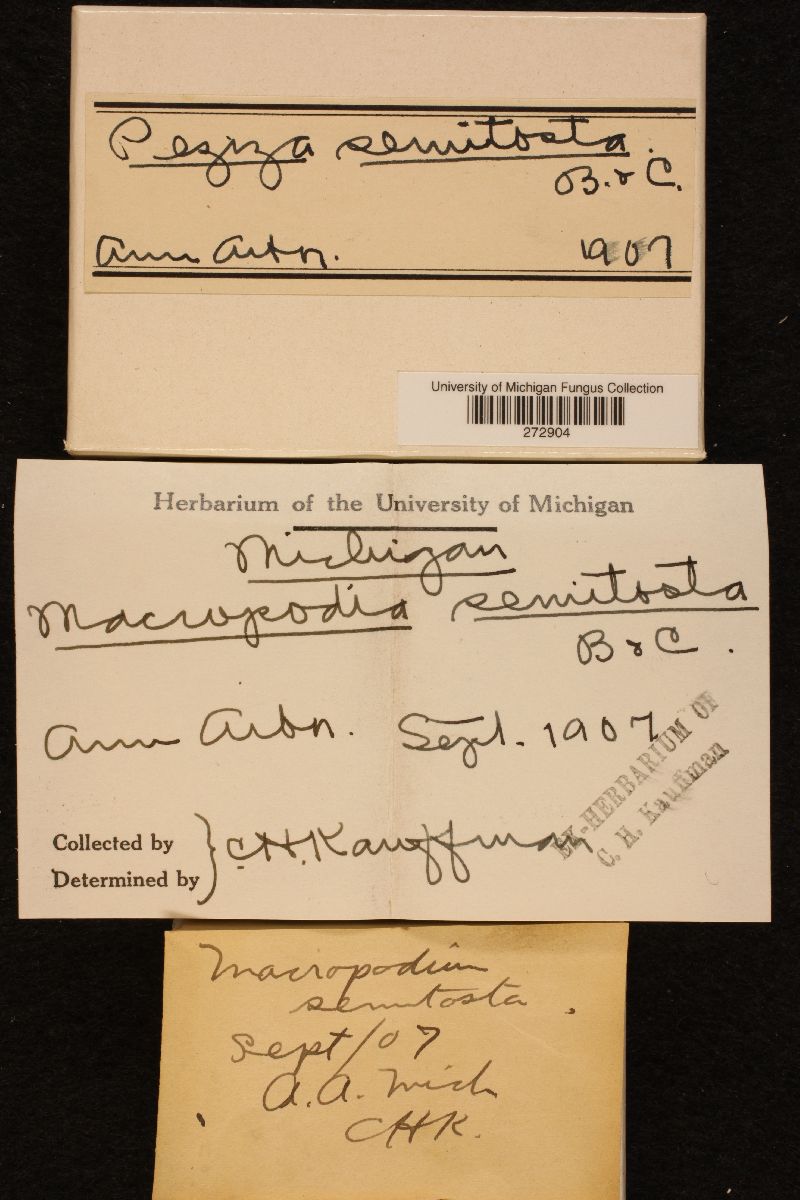 Peziza semitosta.
B. & C.
Ann Arbor. 1907
University of Michigan Fungus Collection
272904
Herbarium of the University of Michigan
Michigan
Macropodia semitosta
B & C.
Ann Arbor. Sept. 1907
EX-HERBARIUM OF
C. H. Kauffman
Collected by
Determined by } C.H. Kauffman
Macropodium
semitosta.
Sept/07
A.A. Mich
CHK.